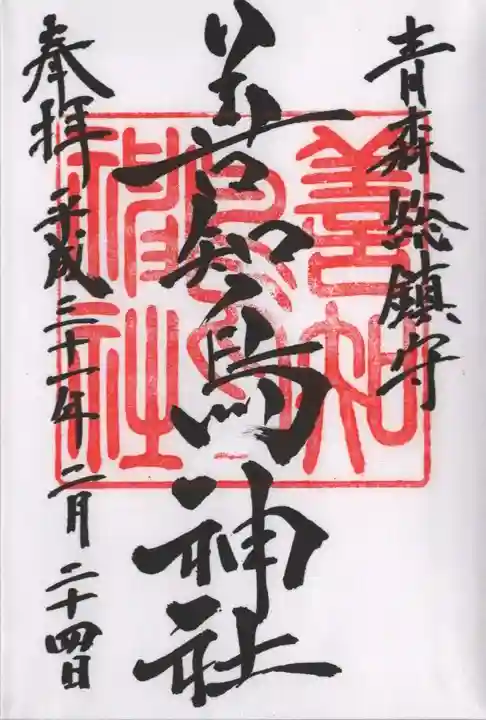 青森総鎮守
善知鳥神社
奉拝 平成三十一年二月二十四日
善知鳥神社